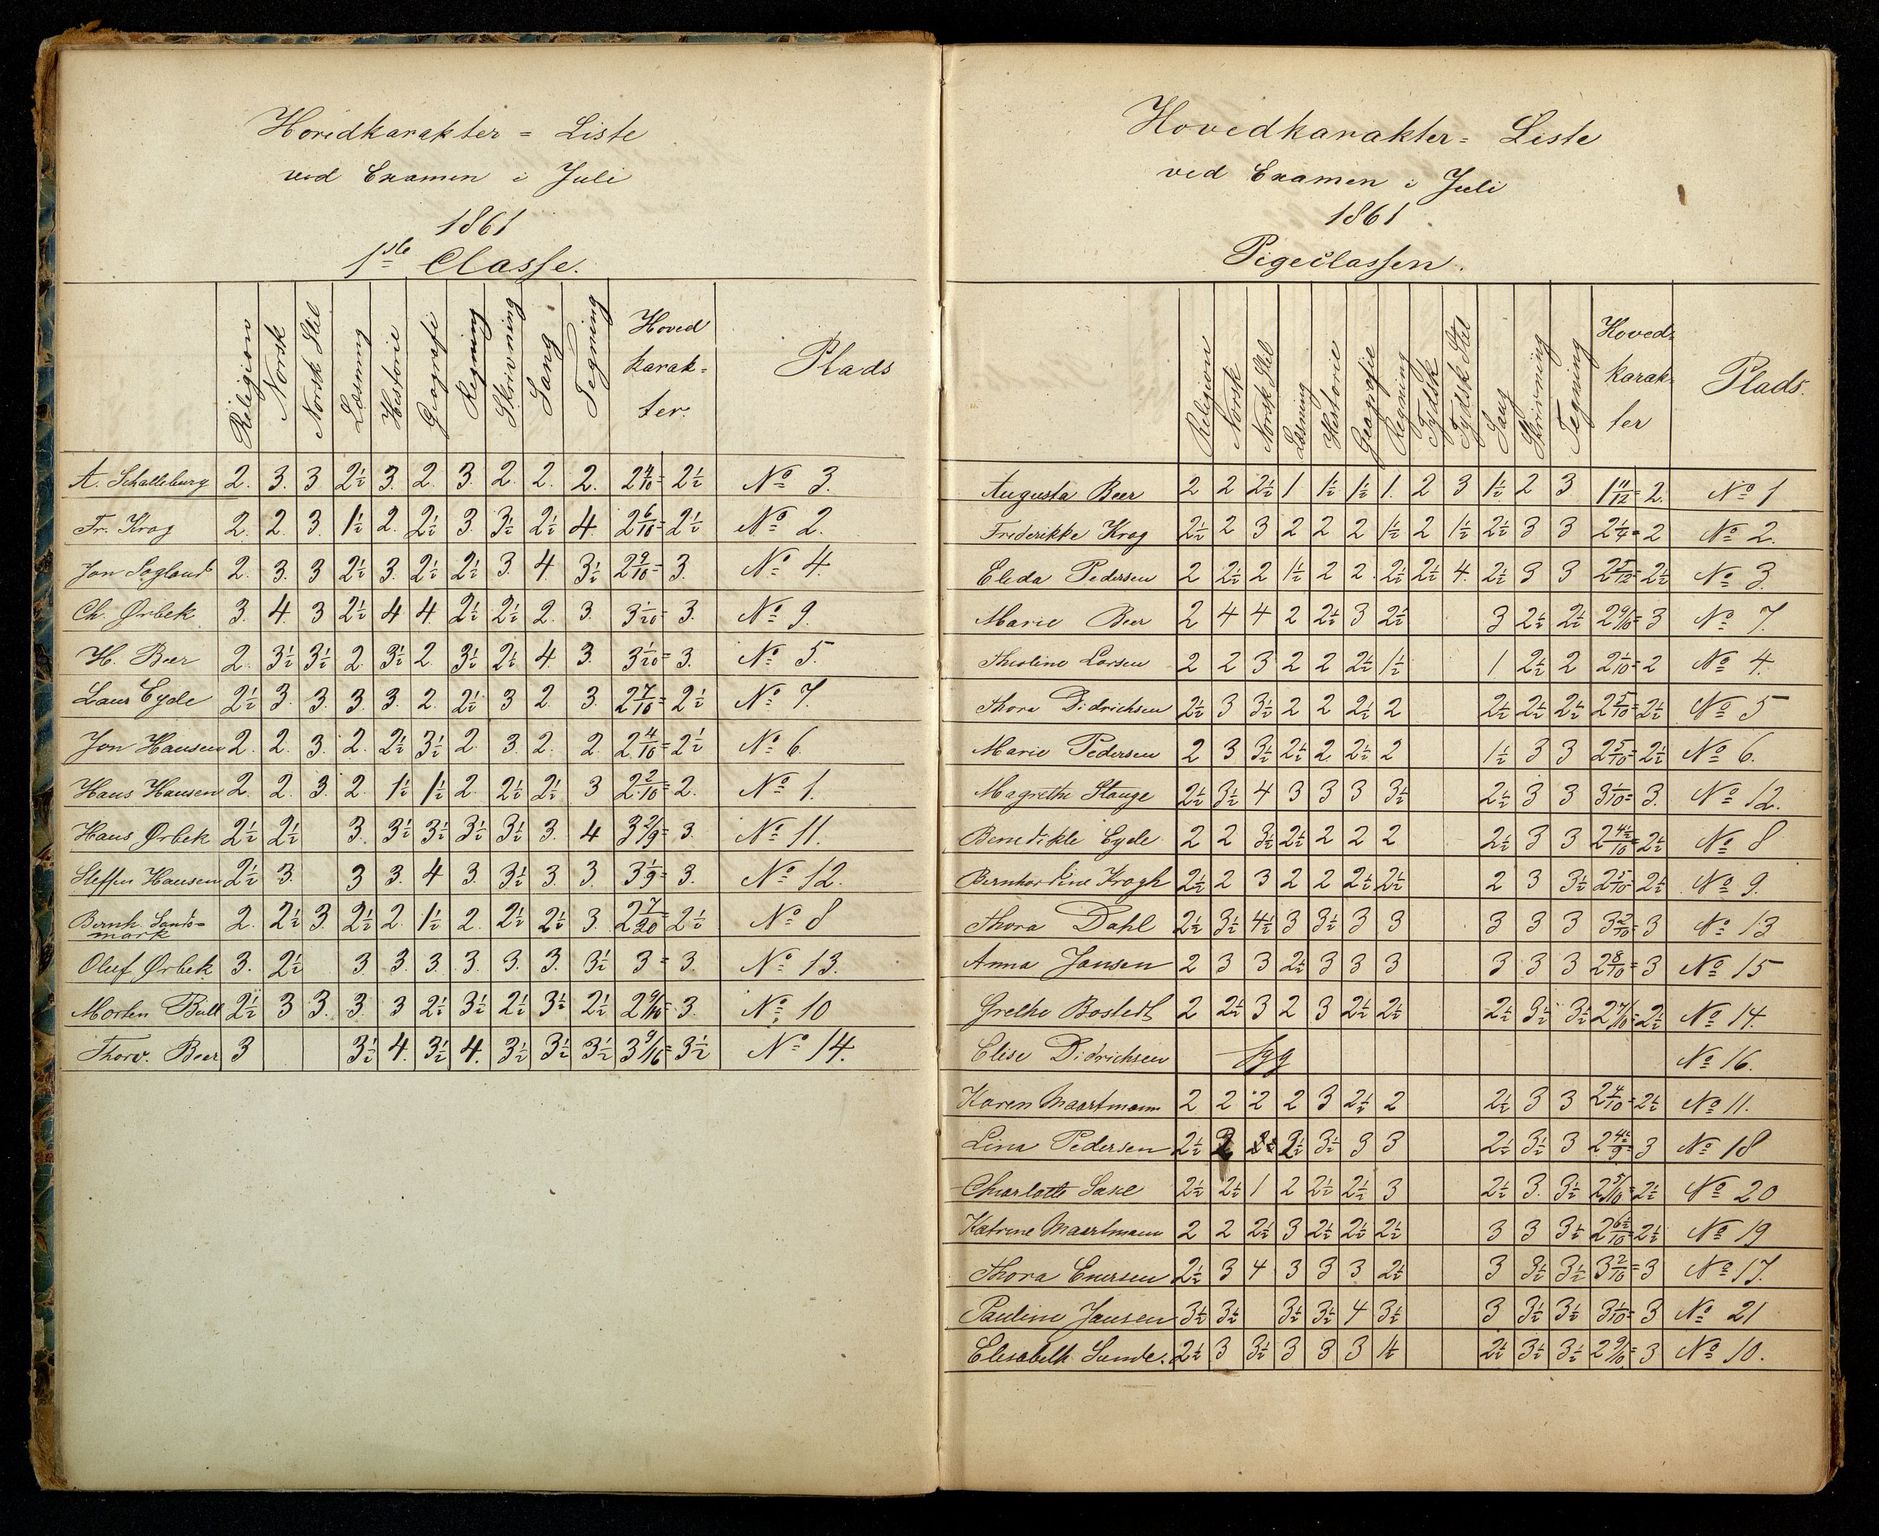 Hovedkarakter = Liste
ved Examen i Juli
1861
1ste Classe.
Religion Norsk Norsk Stil Læsning Historie Geografi Regning Skrivning Sang Tegning Hoved karak= ter. Plads
A. Schalleburg 2. 3. 3 2½ 3. 2. 3. 2. 2. 2. 2 4/10 = 2½ No 3.
Fr. Krog 2. 2. 3 1½ 2. 2½ 3. 3½ 2½ 4. 2 6/10 = 2½ No 2.
Jon 2. 3. 3 2½ 3. 2½ 2½ 3. 4. 3½ 2 9/10 = 3. No 4.
Ch. Ørbek 3. 4. 3 2½ 4 4 2½ 2½ 2. 3. 3 1/20 = 3. No 9.
H. Beer 2. 3½ 3½ 2 3½ 2 3½ 2½ 4. 3. 3 1/20 = 3. No 5.
Laur Eyde 2½ 3. 3. 3. 3. 2 2½ 3 2. 3. 2 7/10 = 2½ No 7.
Jon Hansen 2. 2. 3. 2. 2½ 3½ 2. 3. 2. 2. 2 4/10 = 2½ No 6.
Hans Hansen 2. 2. 3. 2. 1½ 1½ 2. 2½ 2½ 3 2 2/10 = 2. No 1.
Hans Ørbek 2½ 2½ 3. 3½ 3½ 3½ 3½ 3. 4 3 2/9 = 3. No 11.
Steffen Hansen 2½ 3. 3 3. 4 3. 3½ 3. 3. 3 1/9 = 3. No 12.
Bernh. Sands=
mark 2. 2½ 3. 2½ 2. 1½ 2. 2½ 2½ 3. 2 7/20 = 2½ No 8
Oluf Ørbek 3. 2½ 3. 3. 3. 3. 3. 3. 3½ 3 = 3. No 13.
Morten Bull 2½ 3 3. 3. 3 2½ 3½ 2½ 3½ 2½ 2 9/10 = 3. No 10
Thorv. Beer 3 3½ 4. 3½ 4. 3½ 3½ 3½ 3 9/16 = 3½ No 14.
Hovedkarakter = Liste
ved Examen i Juli
1861
Pigeclassen.
Religion Norsk Norsk Stil Læsning Historie Geografie Regning Tydsk Tydsk Stil Sang Skrivning Tegning Hoved= karak= ter Plads.
Augusta Beer 2 2 2½ 1 1½ 1½ 1. 2 3 1½ 2 3 1 11/12 = 2. No 1
Friderikke Krog 2½ 2 3 2 2 2 1½ 2 1½ 2½ 3 3 2 1/4 = 2 No 2.
Elida Pedersen 2 2½ 2 1½ 2 2. 2½ 2½ 4. 2½ 3 3 2 5/12 = 2½ No 3.
Marie Beer 2 4 4 2 2½ 3 2½ 3 2½ 2½ 2 9/10 = 3 No 7.
Thioline Larsen 2 2 3 2 2 2½ 1½ 1 2½ 2 2 1/10 = 2 No 4.
Thora Didrichsen 2½ 3 3½ 2 2 2½ 2 2½ 2½ 2½ 2 5/10 = 2½ No 5
Marie Pedersen 2 3 3½ 2½ 2 2½ 2 1½ 3 3 2 5/10 = 2½ No 6.
Magrethe Stange 2½ 3½ 4 3 3 3 3½ 2½ 3 3 3 1/10 = 3. No 12.
Benedikte Eyde 2 2 3½ 2½ 2 2 2 2½ 3 3 2 4½/10 = 2½ No 8
Bernhardine Krogh 2½ 2 3 2 2 2½ 2½ 2 3 3½ 2 5/10 = 2½ No 9.
Thora Dahl 2½ 3½ 4½ 3 3½ 3 3 3 3 3 3 2/10 = 3 No 13
Anna Jansen 2 3 3 2½ 3 3 3 3 3 3 2 8/10 = 3 No 15
Grethe Bostedt 2 2½ 3 2 3 2½ 2½ 2½ 3½ 3½ 2 7/10 = 2½ No 14.
Elise Didrichsen syg No 16.
Karen Maartmann 2 2 2 2 3 2½ 2 2½ 3 3 2 4/10 = 2½ No 11.
Lina Pedersen 2½ 2½ 3½ 3 3 2½ 3½ 3 = 3 No 18
Charlotte 2½ 2½ 1 2 2½ 2½ 3 2½ 3. 3½ 2 5/10 = 2½ No 20
Katrine Maartmann 2 2 2½ 3 2½ 2½ 2½ 3 3 3½ 2 6½/10 = 2½ No 19
Thora Enersen 2½ 3 4 3 3 3 2½ 3 3½ 3½ 3 2/10 = 3 No 17.
Pauline Jansen 3½ 3½ 3½ 3½ 4 3½ 3 3½ 3½ 3 1/10 = 3 No 21
Elisabeth Sunde. 2½ 3 3½ 3 3 3 1½ 2½ 3½ 3½ 2 9/10 = 3 No 10.